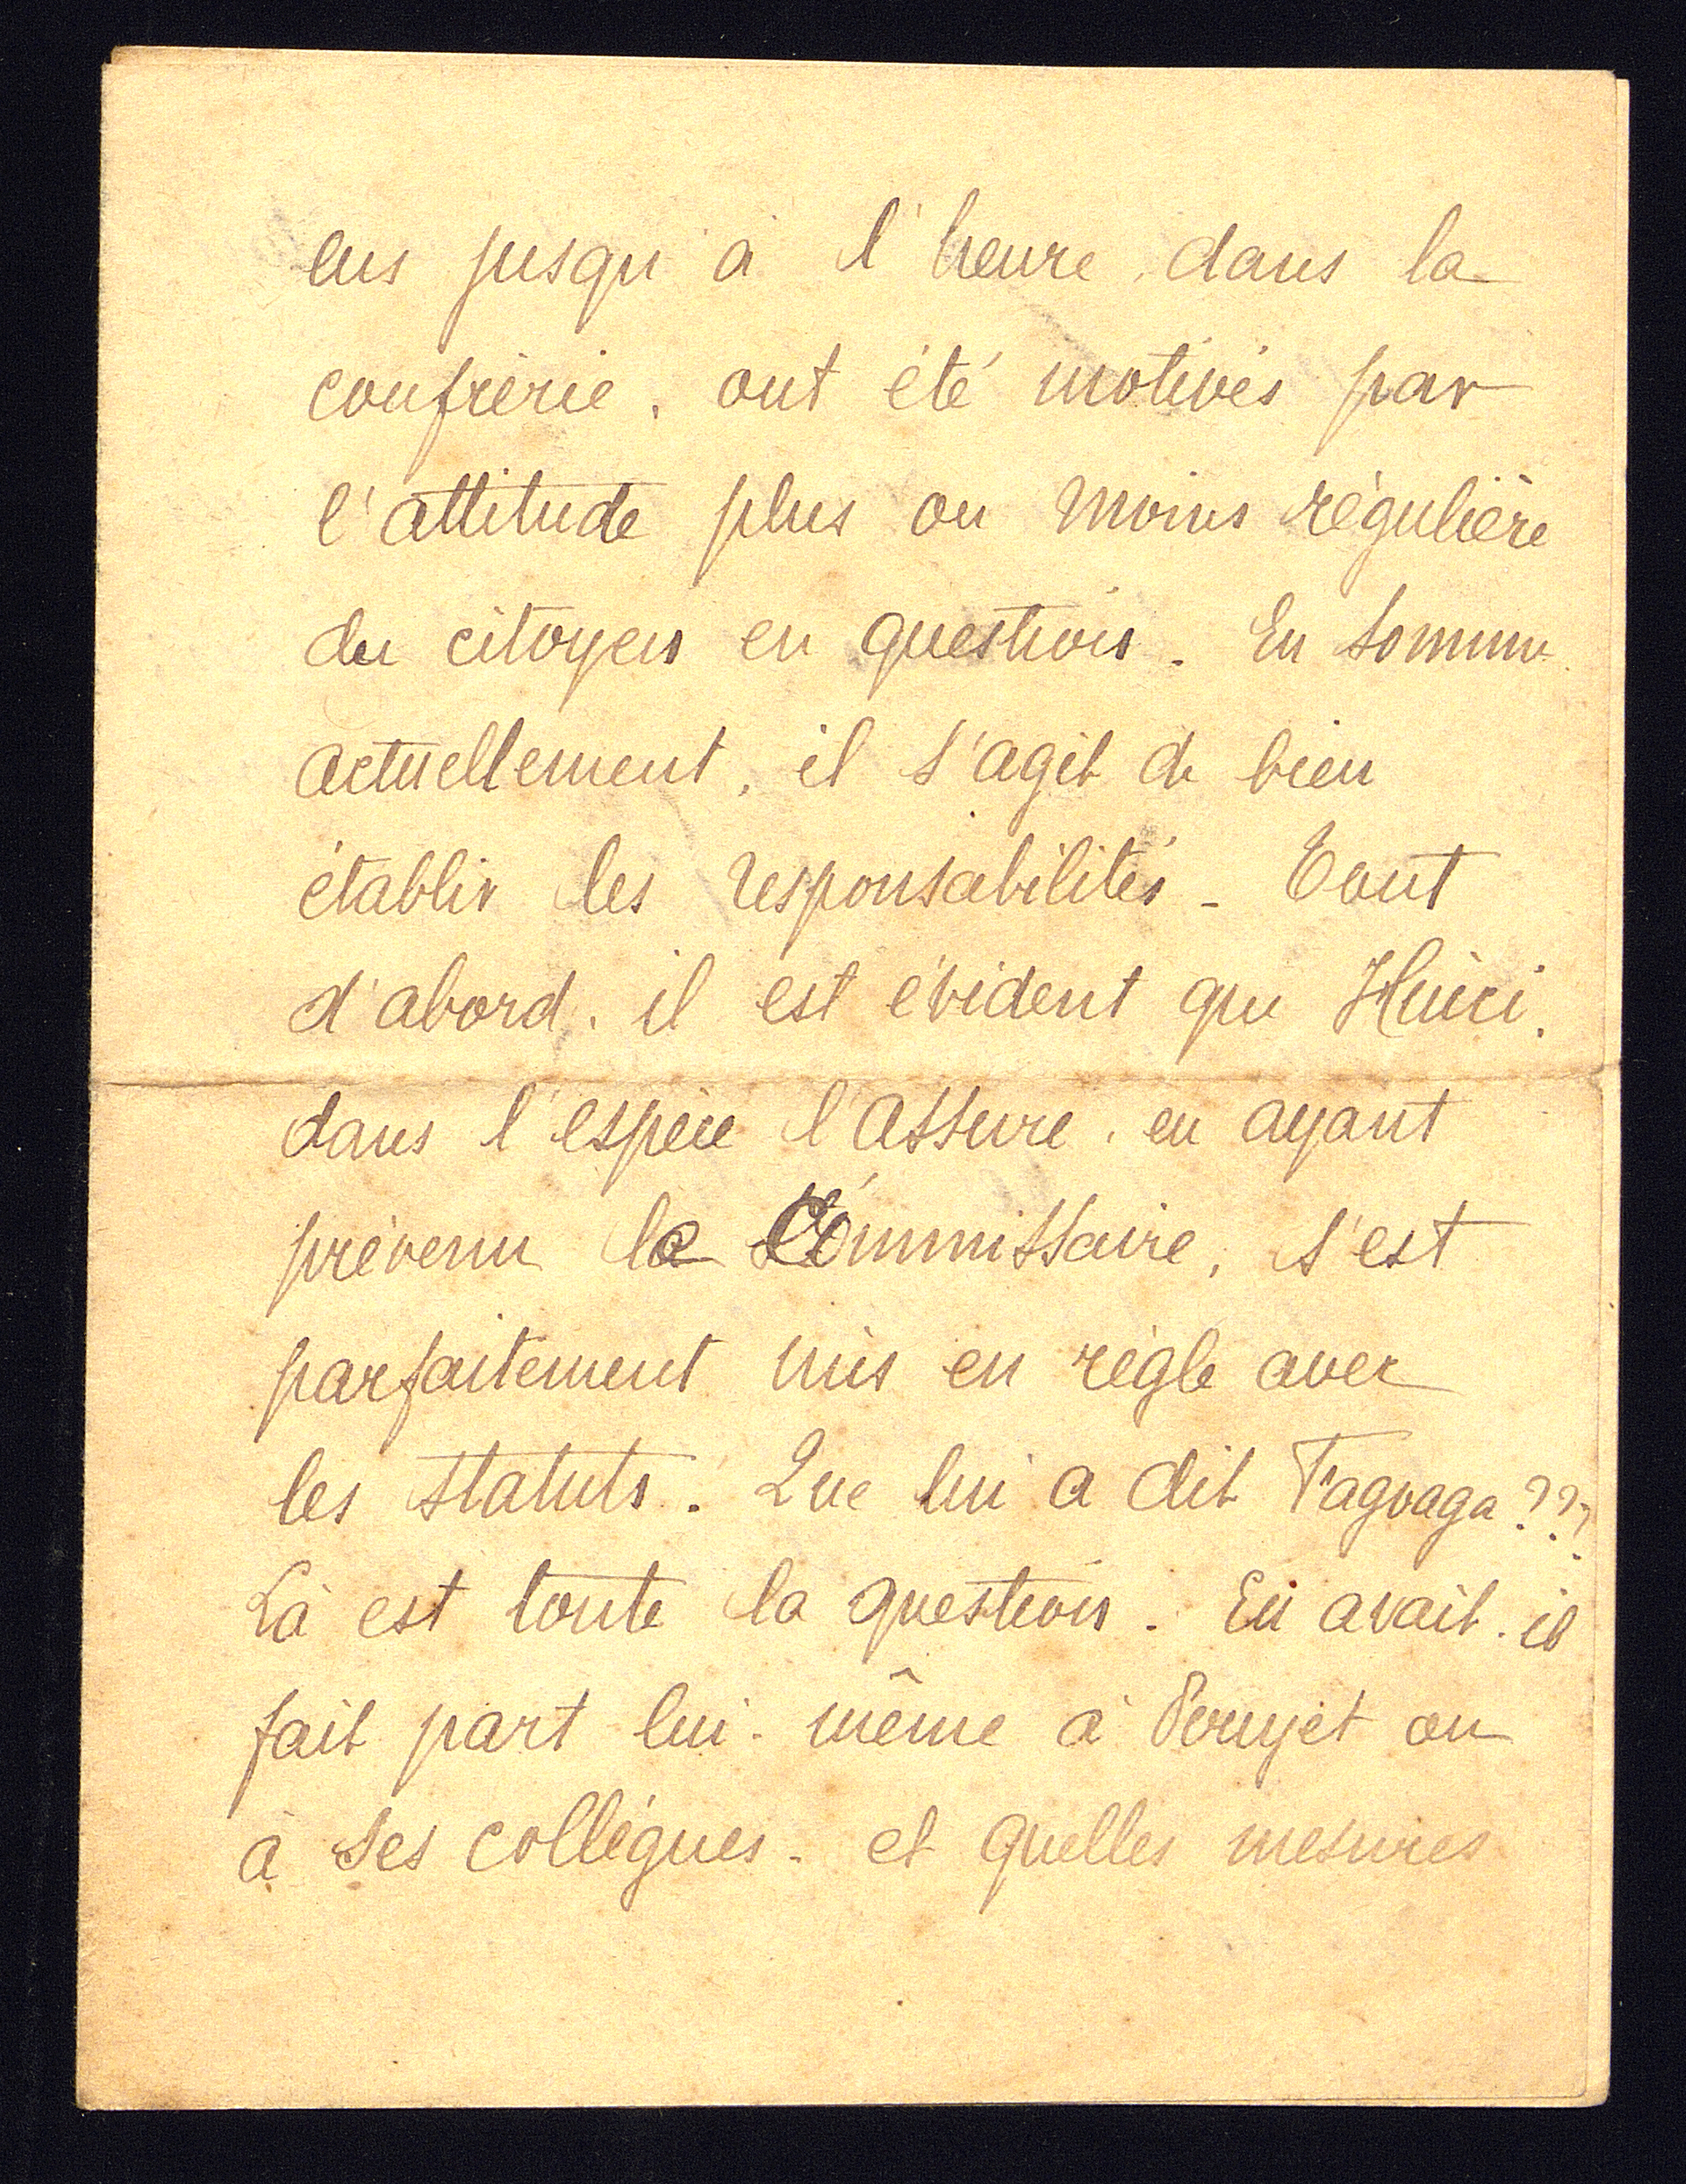 eus jusqu'à l'heure, dans la
confrérie, ont été motivés par
l'attitude plus ou moins régulière
du citoyen en question. En somme
actuellement, il s'agit de bien
établir les responsabilités - Tout
d'abord, il est évident que
dans l'espèce l'assuré, en ayant
prévenu le Commissaire, s'est
parfaitement mis en règle avec
les statuts. Que lui a dit Fagoaga ???
Là est toute la question. En avait-il
fait part lui-même à ou
à ses collègues - et quelles mesures